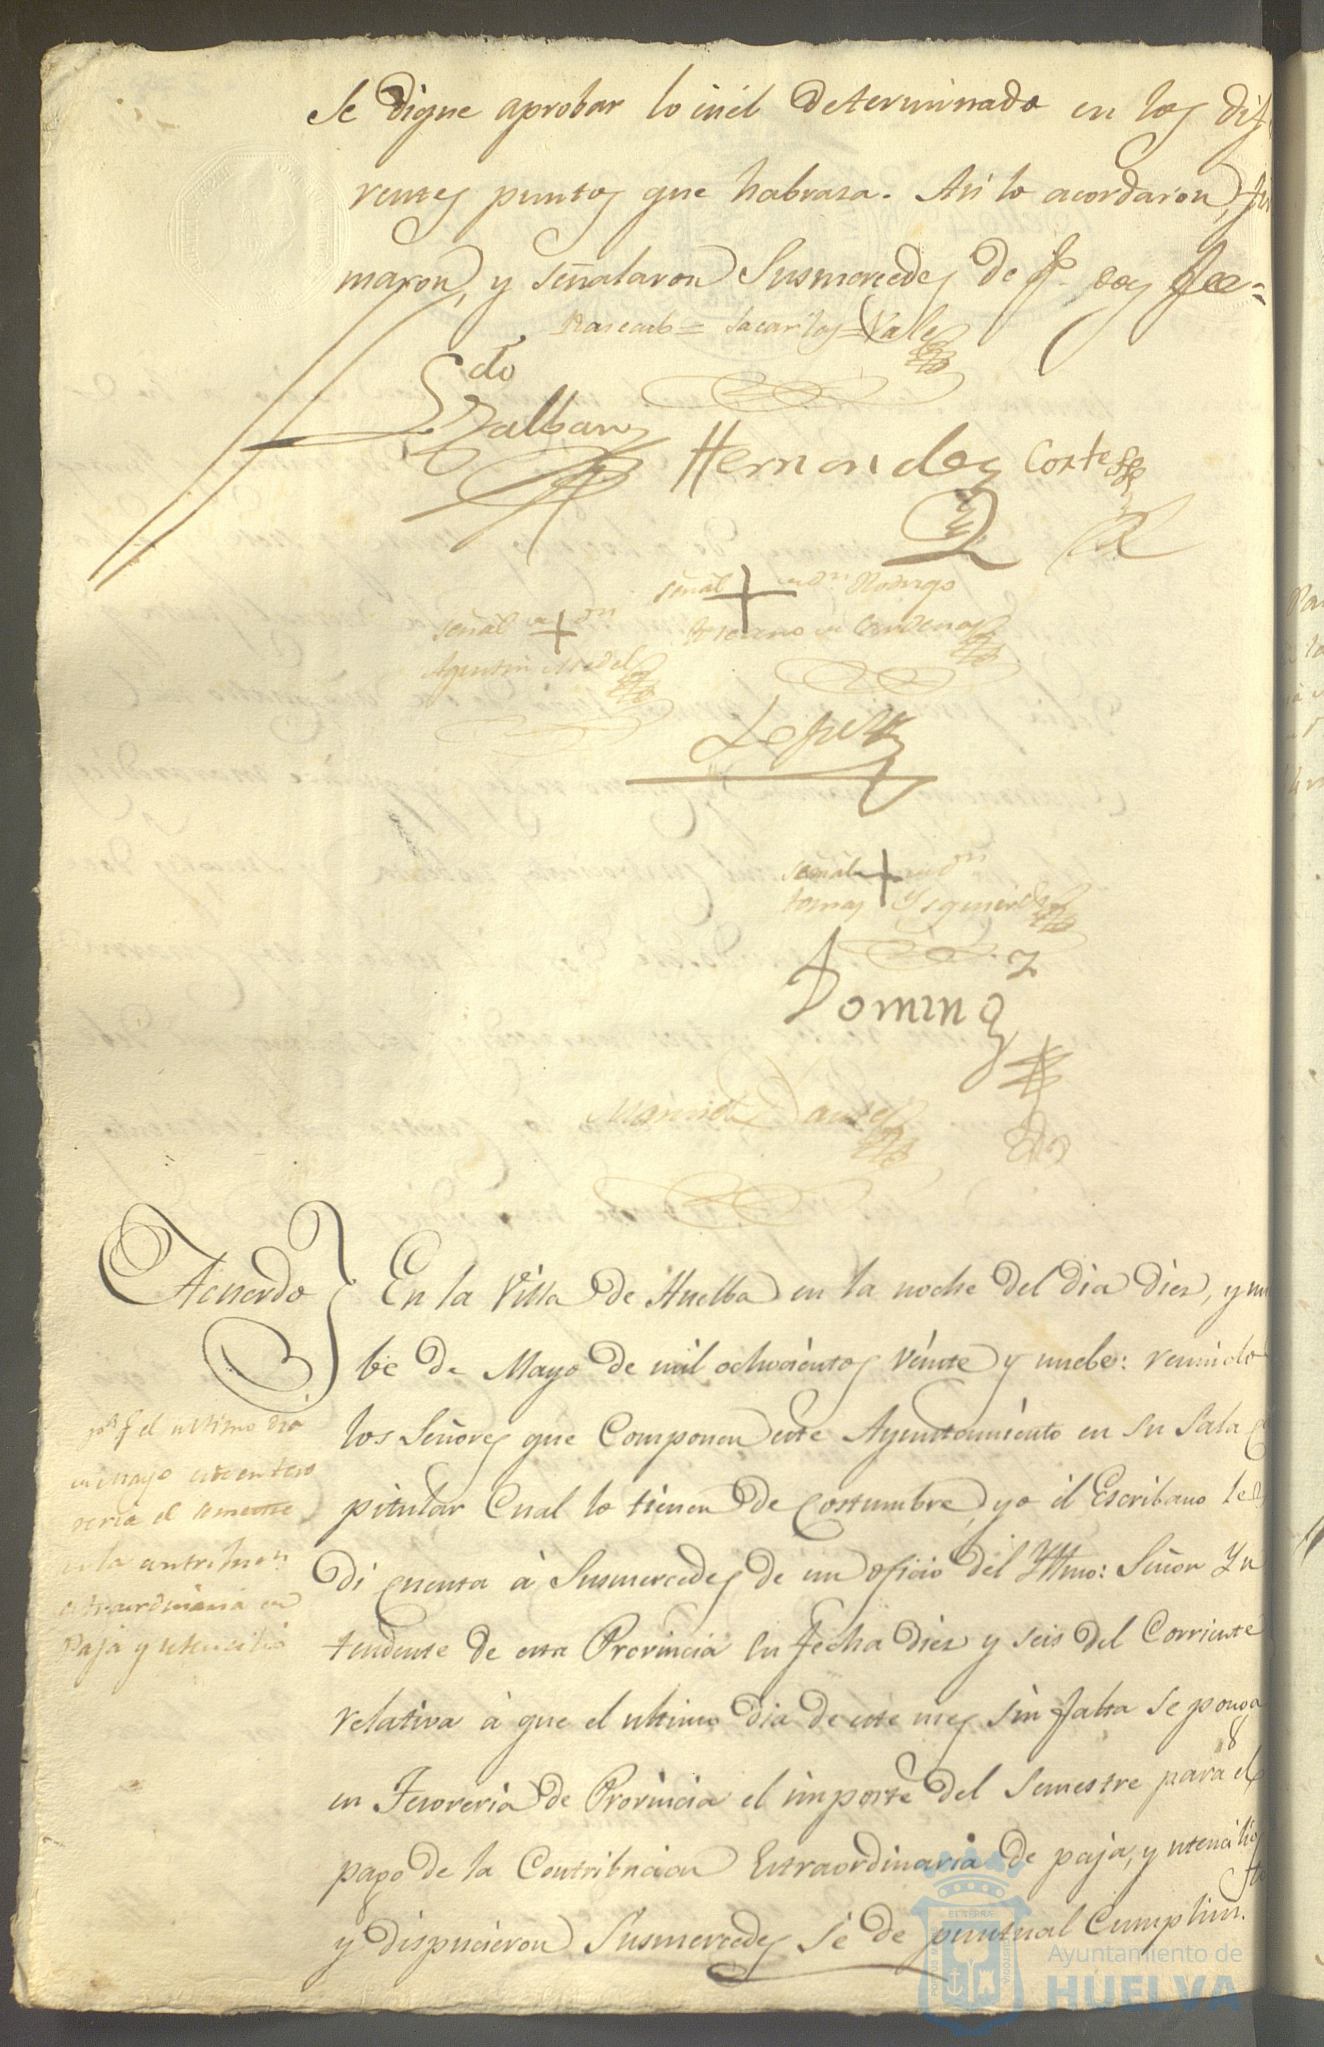 Se digne aprobar lo en él determinado en los dife
rentes puntos que habraza. Asi lo acordaron, fir
maron, y señalaron Susmercedes de q.e doy fee=
Vale
Ldo
Balbany
Hernandez Cortes
señal en Dn Rodrigo
señal de Dn
Agustin Medel
Lopez
señal de Dn
Tomas Ysquierdo
Doming
Manuel
Acuerdo
En la Villa de Huelba en la noche del dia diez, y nu
be de Mayo de mil ochocientos veinte y nuebe: reunidos
los Señores que Componen este Ayuntamiento en su Sala Ca
pitular Cual lo tienen de Costumbre, yo el Escribano les
di cuenta à Susmercedes de un oficio del Yltmo: Señor Yn
tendente de esta Provincia su fecha diez y seis del Corriente
relativa à que el ultimo dia de este mes sin falta se ponga
en Tesoreria de Provincia el importe del Semestre para el
pago de la Contribucion Extraordinaria de paja, y utencilios
y dispucieron Susmercedes se de puntual Cumplim.to
pa q el ultimo dia
de Mayo este en teso
reria el semestre
de la contribuon
extraordinaria de
Paja y utencilio
Ayuntamiento de
HUELVA